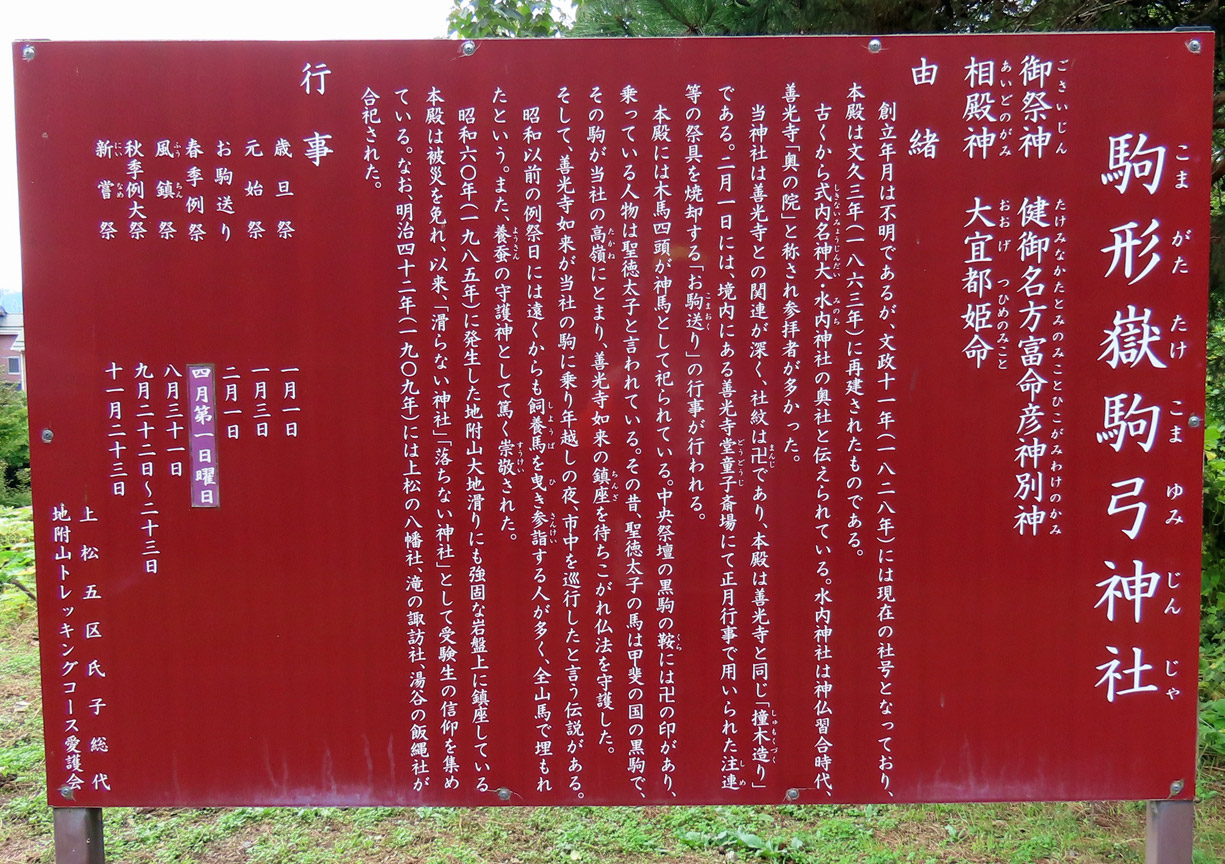 駒形嶽駒弓神社
こまがたたけこまゆみじんじゃ
御祭神　健御名方富命彦神別神
ごさいじん　たけみなかたとみのみことひこがみわけのかみ
相殿神　大宜都姫命
あいどのがみ　おおげつひめのみこと
由緒
創立年月は不明であるが、文政十一年(一八二八年)には現在の社号となっており、
本殿は文久三年(一八六三年)に再建されたものである。
古くから式内名神大・水内神社の奥社と伝えられている。水内神社は神仏習合時代、
しきないみょうじんだい　みのち
善光寺「奥の院」と称され参拝者が多かった。
当神社は善光寺との関連が深く、社紋は卍であり、本殿は善光寺と同じ「撞木造り」
まんじ　しゅもくづく
である。二月一日には、境内にある善光寺堂童子斎場にて正月行事で用いられた注連
どうどうじ　しめ
等の祭具を焼却する「お駒送り」の行事が行われる。
こまおく
本殿には木馬四頭が神馬として祀られている。中央祭壇の黒駒の鞍には卍の印があり、
くら
乗っている人物は聖徳太子と言われている。その昔、聖徳太子の馬は甲斐の国の黒駒で、
その駒が当社の高嶺にとまり、善光寺如来の鎮座を待ちこがれ仏法を守護した。
たかね　ちんざ
そして、善光寺如来が当社の駒に乗り年越しの夜、市中を巡行したと言う伝説がある。
昭和以前の例祭日には遠くからも飼養馬を曳き参詣する人が多く、全山馬で埋もれ
しようば　ひ　さんけい
たという。また、養蚕の守護神として篤く崇敬された。
ようさん　すうけい
昭和六〇年(一九八五年)に発生した地附山大地滑りにも強固な岩盤上に鎮座している
本殿は被災を免れ、以来、「滑らない神社」「落ちない神社」として受験生の信仰を集め
ている。なお、明治四十二年(一九〇九年)には上松の八幡社、滝の諏訪社、湯谷の飯縄社が
合祀された。
行事
歳旦祭　一月一日
元始祭　一月三日
お駒送り　二月一日
春季例祭　四月第一日曜日
風鎮祭　八月三十一日
ふうちん
秋季例大祭　九月二十二日～二十三日
新嘗祭　十一月二十三日
にいなめ
上松五区氏子総代
地附山トレッキングコース愛護会